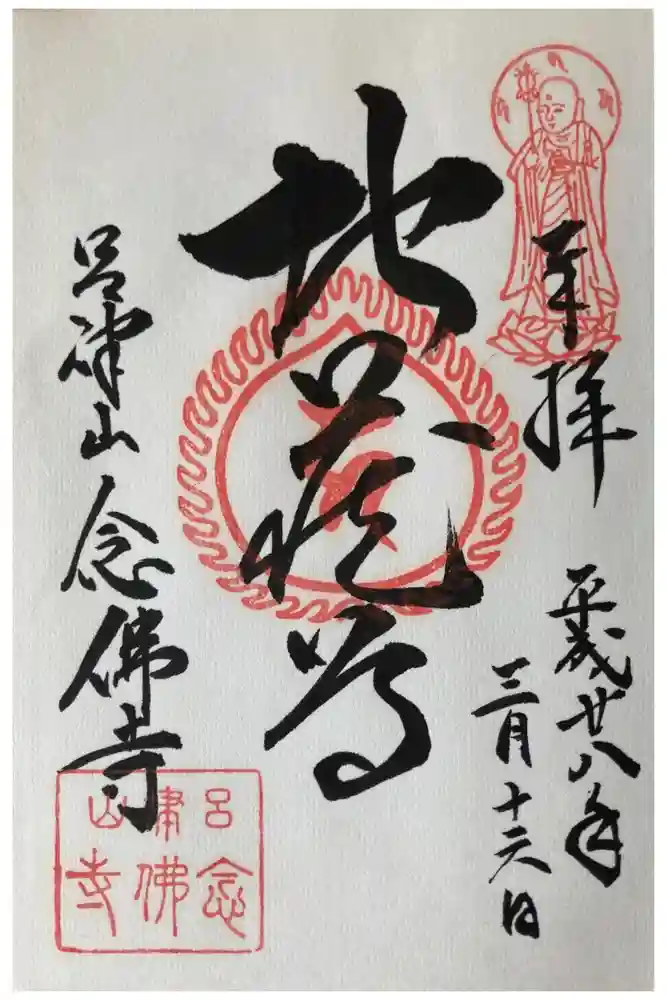 奉拝
平成廿八年
三月十六日
地蔵尊
呂津山 念佛寺
呂津山
念佛寺